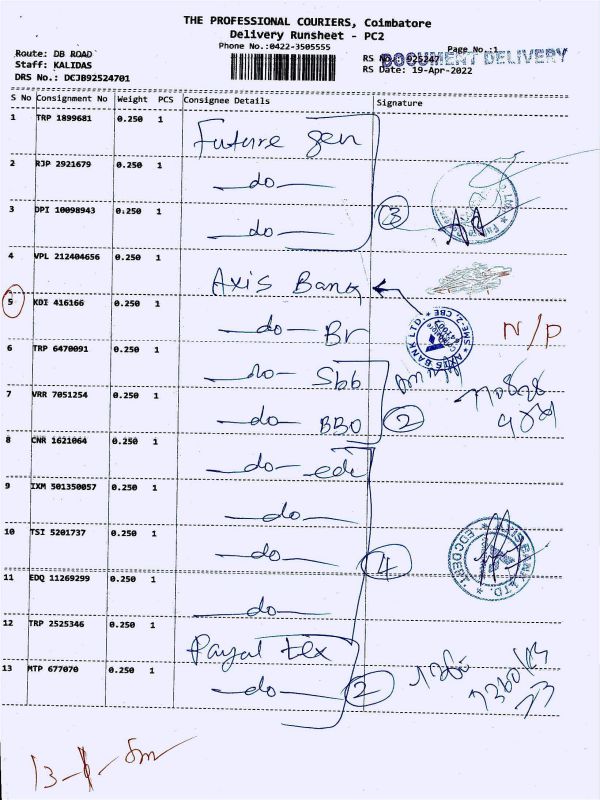 THE PROFESSIONAL COURIERS, Coimbatore
Delivery Runsheet - PC2
Phone No.:0422-3505555
Page No.:1
Route: DB ROAD
RS No.: 925247
DOCUMENT DELIVERY
Staff: KALIDAS
RS Date: 19-Apr-2022
DRS No.: DCJB92524701
S No Consignment No Weight PCS Consignee Details Signature
1 TRP 1899681 0.250 1 Future gen
2 RJP 2921679 0.250 1 do
3 DPI 10098943 0.250 1 do
3
4 VPL 212404656 0.250 1 Axis Bank
5 KDI 416166 0.250 1 do Br
AXIS BANK LTD.
N/P
6 TRP 6470091 0.250 1 do Sbb
7 VRR 7051254 0.250 1 do BBO
2
8 CNR 1621064 0.250 1 do edc
9 IXM 501350057 0.250 1 do
10 TSI 5201737 0.250 1 do
4
AXIS BANK LTD.
11 EDQ 11269299 0.250 1 do
12 TRP 2525346 0.250 1 Payal tex
13 MTP 677070 0.250 1 do
2